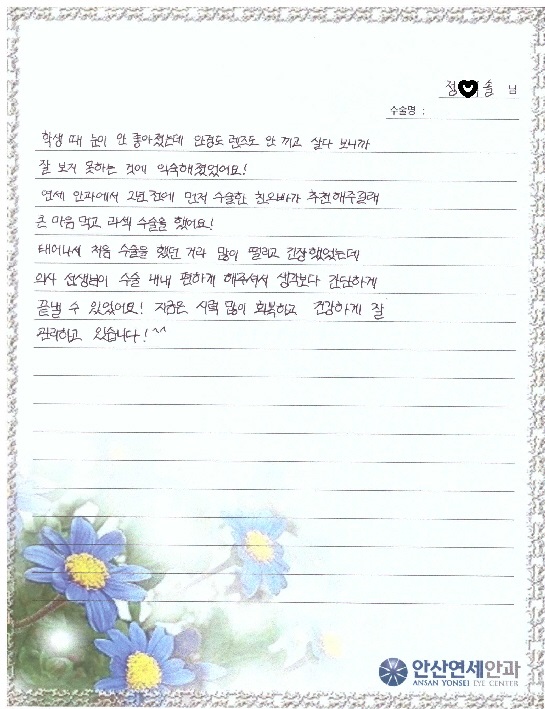 정 솔 님
수술명 :
학생 때 눈이 안 좋아졌는데 안경도 렌즈도 안 끼고 살다 보니까
잘 보지 못하는 것에 익숙해졌었어요!
연세 안과에서 2년 전에 먼저 수술한 친오빠가 추천해주길래
큰 마음 먹고 라섹 수술을 했어요!
태어나서 처음 수술을 했던 거라 많이 떨리고 긴장했었는데
의사 선생님이 수술 내내 편하게 해주셔서 생각보다 간단하게
끝낼 수 있었어요! 지금은 시력 많이 회복하고 건강하게 잘
관리하고 있습니다! ^^
안산연세안과
ANSAN YONSEI EYE CENTER